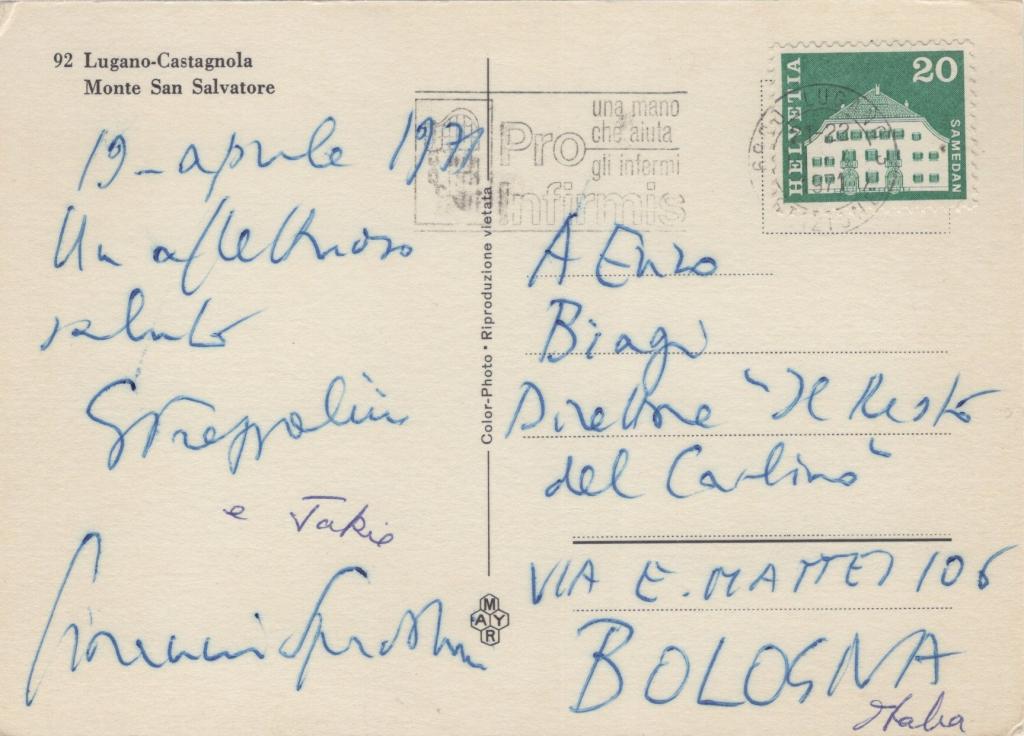 92 Lugano-Castagnola
Monte San Salvatore
19-aprile 1971
Un affettuoso
saluto
e Takie
Giovanni
Color-Photo • Riproduzione vietata
MAYR
Pro
Infirmis
una mano
che aiuta
gli infermi
HELVETIA
20
SAMEDAN
A Enzo
Biagi
Direttore "Il Resto
del Carlino"
VIA E. MATTEI 106
BOLOGNA
Italia